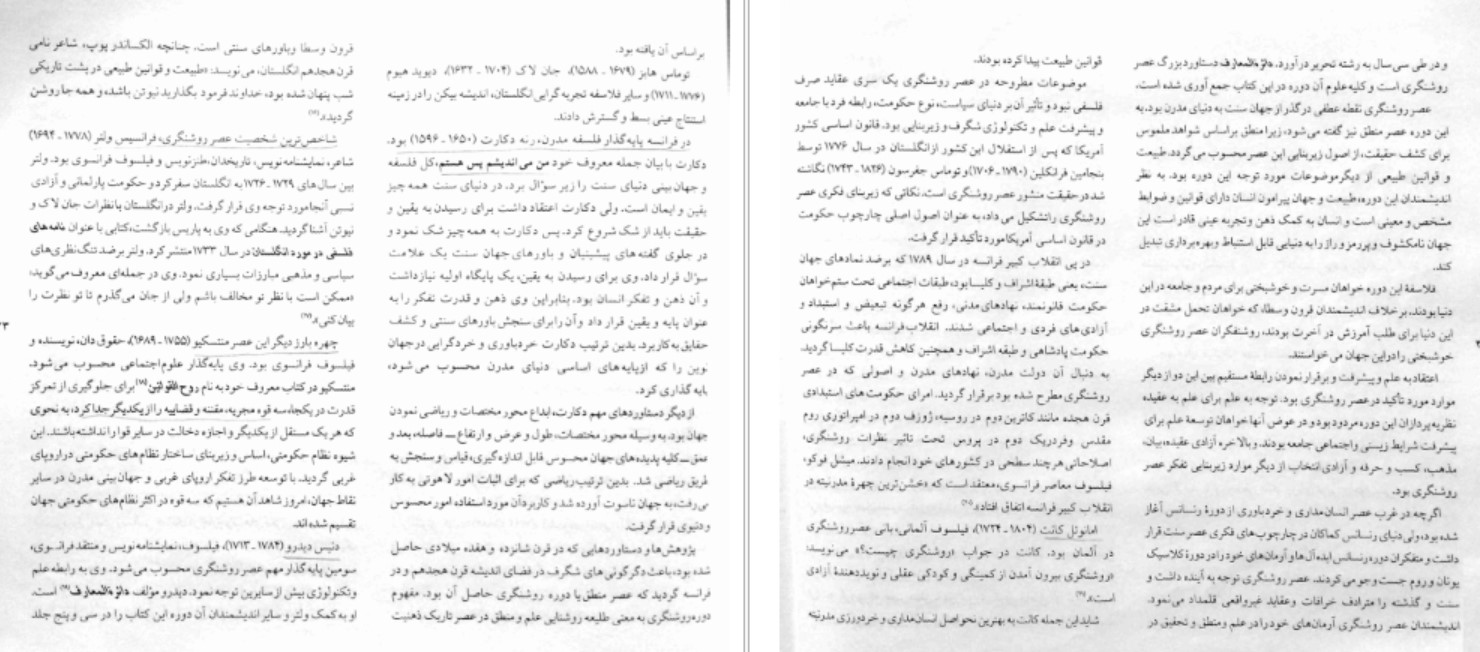 براساس آن یافته بود.
توماس هابز (۱۶۷۹ ـ ۱۵۸۸)، جان لاک (۱۷۰۴ ـ ۱۶۳۲)، دیوید هیوم
(۱۷۷۶ـ۱۷۱۱) و سایر فلاسفه تجربه گرایی انگلستان، اندیشه بیکن را در زمینه
استنتاج عینی بسط و گسترش دادند.
در فرانسه پایه‌گذار فلسفه مدرن، رنه دکارت (۱۶۵۰ ـ ۱۵۹۶) بود.
دکارت با بیان جمله معروف خود من می اندیشم پس هستم، کل فلسفه
و جهان بینی دنیای سنت را زیر سؤال برد. در دنیای سنت همه چیز
یقین و ایمان است. ولی دکارت اعتقاد داشت برای رسیدن به یقین و
حقیقت باید از شک شروع کرد. پس دکارت به همه چیز شک نمود و
در جلوی گفته های پیشینیان و باورهای جهان سنت یک علامت
سؤال قرار داد. وی برای رسیدن به یقین، یک پایگاه اولیه نیاز داشت
و آن ذهن و تفکر انسان بود. بنابراین وی ذهن و قدرت تفکر را به
عنوان پایه و یقین قرار داد و آن را برای سنجش باورهای سنتی و کشف
حقایق به کار برد. بدین ترتیب دکارت خردباوری و خردگرایی در جهان
نوین را که از پایه‌های اساسی دنیای مدرن محسوب می‌شود،
پایه گذاری کرد.
از دیگر دستاوردهای مهم دکارت، ابداع محور مختصات و ریاضی نمودن
جهان بود. به وسیله محور مختصات، طول و عرض و ارتفاع ــ فاصله، بعد و
عمق ــ کلیه پدیده‌های جهان محسوس قابل اندازه گیری، قیاس و سنجش به
طریق ریاضی شد. بدین ترتیب ریاضی که برای اثبات امور لاهوتی به کار
می‌رفت، به جهان ناسوت آورده شد و کاربرد آن مورد استفاده امور محسوس
و دنیوی قرار گرفت.
پژوهش‌ها و دستاوردهایی که در قرن شانزده و هفده میلادی حاصل
شده بود، باعث دگرگونی های شگرف در فضای اندیشه قرن هجدهم و در
فرانسه گردید که عصر منطق یا دوره روشنگری حاصل آن بود. مفهوم
دوره روشنگری به معنی طلیعه روشنایی علم و منطق در عصر تاریک ذهنیت
قرون وسطا و باورهای سنتی است. چنانچه الکساندر پوپ، شاعر نامی
قرن هجدهم انگلستان، می‌نویسد: «طبیعت و قوانین طبیعی در پشت تاریکی
شب پنهان شده بود، خداوند فرمود بگذارید نیوتن باشد، و همه جا روشن
گردید.»
شاخص‌ترین شخصیت عصر روشنگری، فرانسیس ولتر (۱۷۷۸ ـ ۱۶۹۴)
شاعر، نمایشنامه نویس، تاریخدان، طنزنویس و فیلسوف فرانسوی بود. ولتر
بین سال‌های ۱۷۲۹ ـ ۱۷۲۶ به انگلستان سفر کرد و حکومت پارلمانی و آزادی
نسبی آنجا مورد توجه وی قرار گرفت. ولتر در انگلستان با نظرات جان لاک و
نیوتن آشنا گردید. هنگامی که وی به پاریس بازگشت، کتابی با عنوان نامه‌های
فلسفی در مورد انگلستان در سال ۱۷۳۳ منتشر کرد. ولتر بر ضد تنگ نظری‌های
سیاسی و مذهبی مبارزات بسیاری نمود. وی در جمله‌ای معروف می‌گوید:
«ممکن است با نظر تو مخالف باشم ولی از جان می‌گذرم تا تو نظرت را
بیان کنی.»
چهره بارز دیگر این عصر منتسکیو (۱۷۵۵ ـ ۱۶۸۹)، حقوق دان، نویسنده و
فیلسوف فرانسوی بود. وی پایه‌گذار علوم اجتماعی محسوب می‌شود.
منتسکیو در کتاب معروف خود به نام روح القوانین برای جلوگیری از تمرکز
قدرت در یکجا، سه قوه مجریه، مقننه و قضاییه را از یکدیگر جدا کرد، به نحوی
که هر یک مستقل از یکدیگر و اجازه دخالت در سایر قوا را نداشته باشند. این
شیوه نظام حکومتی، اساس و زیربنای ساختار نظام های حکومتی در اروپای
غربی گردید. با توسعه طرز تفکر اروپای غربی و جهان بینی مدرن در سایر
نقاط جهان، امروز شاهد آن هستیم که سه قوه در اکثر نظام‌های حکومتی جهان
تقسیم شده اند.
دنیس دیدرو (۱۷۸۴ ـ ۱۷۱۳)، فیلسوف، نمایشنامه نویس و منتقد فرانسوی،
سومین پایه گذار مهم عصر روشنگری محسوب می‌شود. وی به رابطه علم
و تکنولوژی بیش از سایرین توجه نمود. دیدرو مؤلف دائرةالمعارف است.
او به کمک ولتر و سایر اندیشمندان آن دوره این کتاب را در سی و پنج جلد
و در طی سی سال به رشته تحریر درآورد. دائرةالمعارف دستاورد بزرگ عصر
روشنگری است و کلیه علوم آن دوره در این کتاب جمع آوری شده است.
عصر روشنگری نقطه عطفی در گذار از جهان سنت به دنیای مدرن بود. به
این دوره عصر منطق نیز گفته می‌شود، زیرا منطق براساس شواهد ملموس
برای کشف حقیقت، از اصول زیربنایی این عصر محسوب می گردد. طبیعت
و قوانین طبیعی از دیگر موضوعات مورد توجه این دوره بود. به نظر
اندیشمندان این دوره، طبیعت و جهان پیرامون انسان دارای قوانین و ضوابط
مشخص و معینی است و انسان به کمک ذهن و تجربه عینی قادر است این
جهان نامکشوف و پررمز و راز را به دنیایی قابل استنباط و بهره برداری تبدیل
کند.
فلاسفۀ این دوره خواهان مسرت و خوشبختی برای مردم و جامعه در این
دنیا بودند. بر خلاف اندیشمندان قرون وسطا، که خواهان تحمل مشقت در
این دنیا برای طلب آمرزش در آخرت بودند، روشنفکران عصر روشنگری
خوشبختی را در این جهان می خواستند.
اعتقاد به علم و پیشرفت و برقرار نمودن رابطۀ مستقیم بین این دو از دیگر
موارد مورد تأکید در عصر روشنگری بود. توجه به علم برای علم به عقیده
نظریه پردازان این دوره مردود بود و در عوض آنها خواهان توسعۀ علم برای
پیشرفت شرایط زیستی و اجتماعی جامعه بودند. و بالاخره آزادی عقیده، بیان،
مذهب، کسب و حرفه و آزادی انتخاب از دیگر موارد زیربنایی تفکر عصر
روشنگری بود.
اگرچه در غرب عصر انسان‌مداری و خردباوری از دورۀ رنسانس آغاز
شده بود، ولی دنیای رنسانس کماکان در چارچوب‌های فکری عصر سنت قرار
داشت و متفکران دوره رنسانس ایده‌آل‌ها و آرمان‌های خود را در دورۀ کلاسیک
یونان و روم جست و جو می کردند. عصر روشنگری توجه به آینده داشت و
سنت و گذشته را مترادف خرافات و عقاید غیرواقعی قلمداد می‌نمود.
اندیشمندان عصر روشنگری آرمان‌های خود را در علم و منطق و تحقیق در
قوانین طبیعت پیدا کرده بودند.
موضوعات مطروحه در عصر روشنگری یک سری عقاید صرف
فلسفی نبود و تأثیر آن بر دنیای سیاست، نوع حکومت، رابطه فرد با جامعه
و پیشرفت علم و تکنولوژی شگرف و زیربنایی بود. قانون اساسی کشور
آمریکا که پس از استقلال این کشور از انگلستان در سال ۱۷۷۶ توسط
بنجامین فرانکلین (۱۷۹۰ـ۱۷۰۶) و توماس جفرسون (۱۸۲۶ ـ ۱۷۴۳) نگاشته
شد در حقیقت منشور عصر روشنگری است. نکاتی که زیربنای فکری عصر
روشنگری را تشکیل می داد، به عنوان اصول اصلی چارچوب حکومت
در قانون اساسی آمریکا مورد تأکید قرار گرفت.
در پی انقلاب کبیر فرانسه در سال ۱۷۸۹ که بر ضد نمادهای جهان
سنت، یعنی طبقۀ اشراف و کلیسا بود، طبقات اجتماعی تحت ستم خواهان
حکومت قانونمند، نهادهای مدنی، رفع هرگونه تبعیض و استبداد و
آزادی‌های فردی و اجتماعی شدند. انقلاب فرانسه باعث سرنگونی
حکومت پادشاهی و طبقه اشراف و همچنین کاهش قدرت کلیسا گردید.
به دنبال آن دولت مدرن، نهادهای مدرن و اصولی که در عصر
روشنگری مطرح شده بود برقرار گردید. امرای حکومت های استبدادی
قرن هجده مانند کاترین دوم در روسیه، ژوزف دوم در امپراتوری روم
مقدس و فردریک دوم در پروس تحت تاثیر نظرات روشنگری،
اصلاحاتی هرچند سطحی در کشورهای خود انجام دادند. میشل فوکو،
فیلسوف معاصر فرانسوی، معتقد است که «خشن‌ترین چهرۀ مدرنیته در
انقلاب کبیر فرانسه اتفاق افتاد.»
امانوئل کانت (۱۸۰۴ ـ ۱۷۲۴)، فیلسوف آلمانی، بانی عصر روشنگری
در آلمان بود. کانت در جواب «روشنگری چیست؟» می نویسد:
«روشنگری بیرون آمدن از کمینگی و کودکی عقلی و نویددهندۀ آزادی
است.»
شاید این جمله کانت به بهترین نحو اصل انسان‌مداری و خردورزی مدرنیته